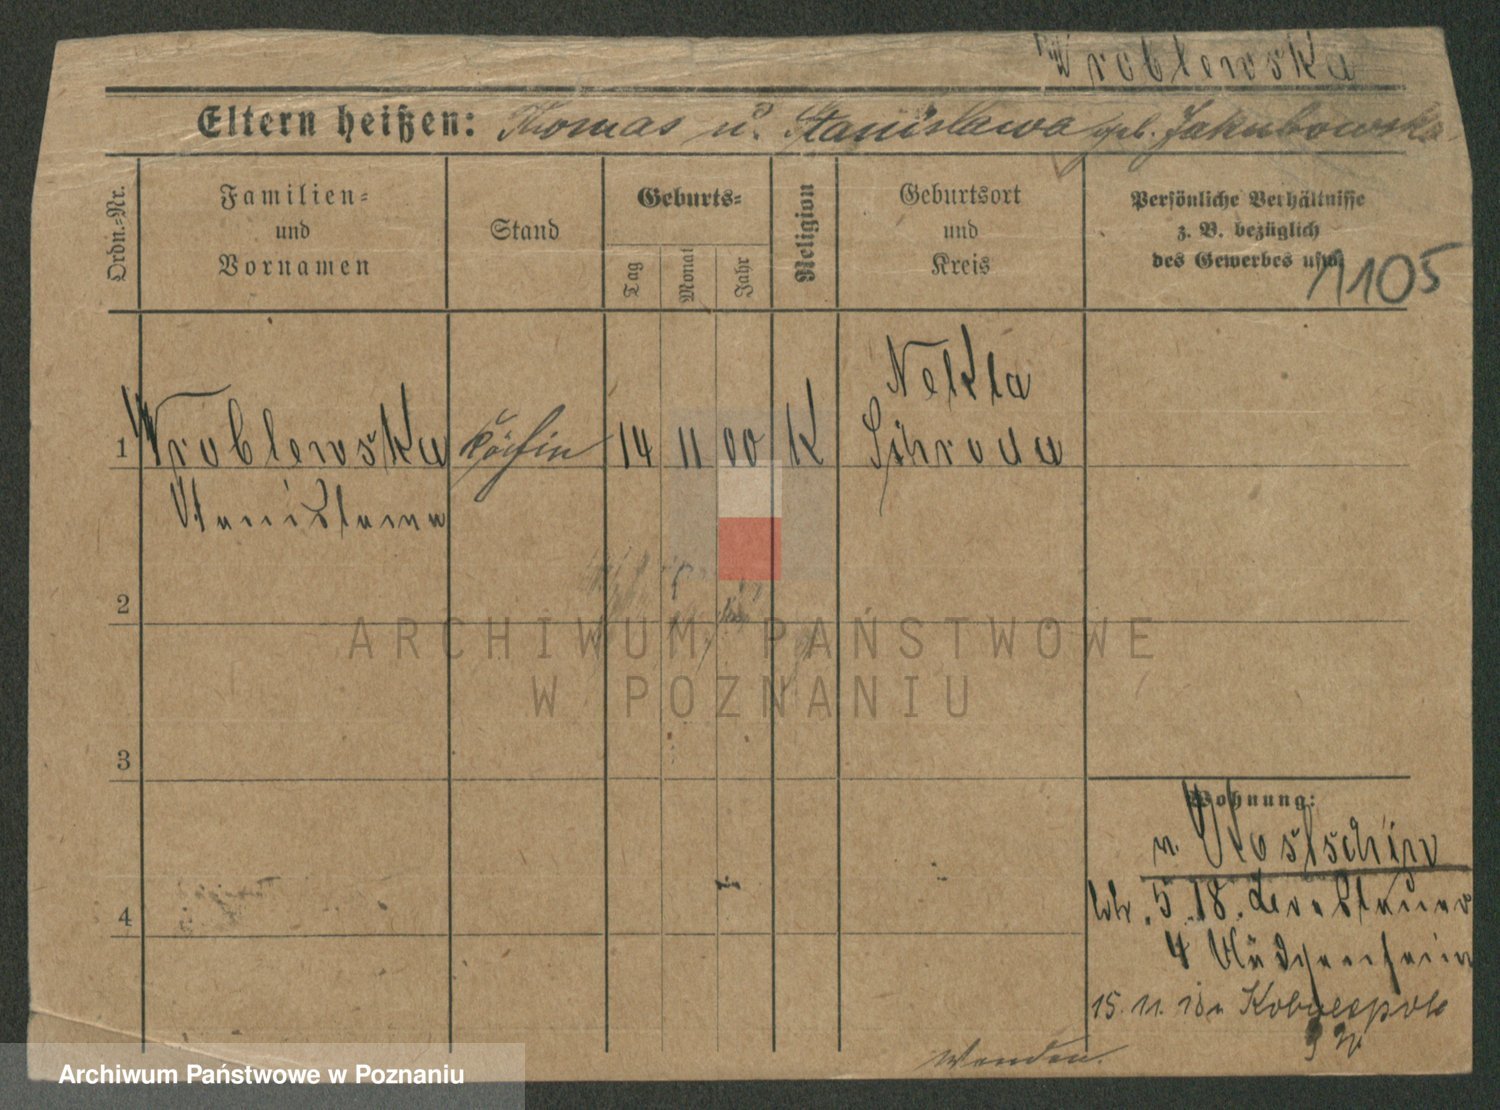 Wroblewska
Eltern heißen: Thomas u. Stanislawa geb. Jakubowska
Ordn.-Nr.
Familien-
und
Vornamen
Stand
Geburts-
Tag
Monat
Jahr
Religion
Geburtsort
und
Kreis
Persönliche Verhältnisse
z. B. bezüglich
des Gewerbes usw.
1105
1 Wroblewska Köchin 14 11 00 K Nekla
Schroda
Stanislawa
2
ARCHIWUM PAŃSTWOWE
W POZNANIU
3
4
Wohnung:
n. Kostschin
5. 18.
4
15. 11. Kobylepole
Wenden.
Archiwum Państwowe w Poznaniu